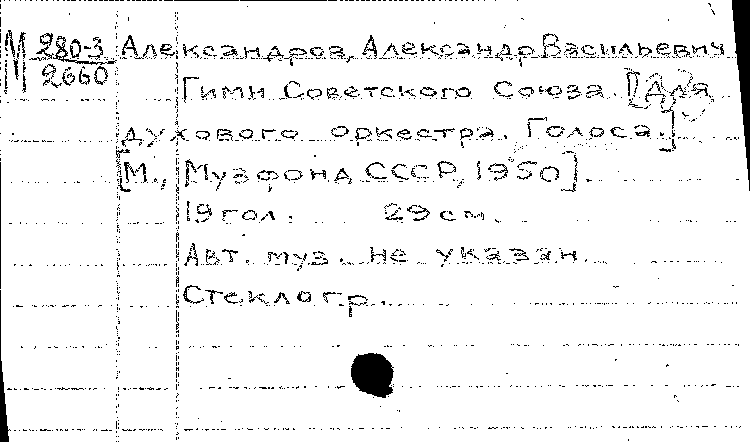 М 280-3 Александров, Александр Васильевич
2660
Гимн Советского Союза. [Для
духового оркестра. Голоса.]
[М., Музфонд СССР, 1950].
19 гол. 29 см.
Авт. муз. не указан.
Стеклогр.